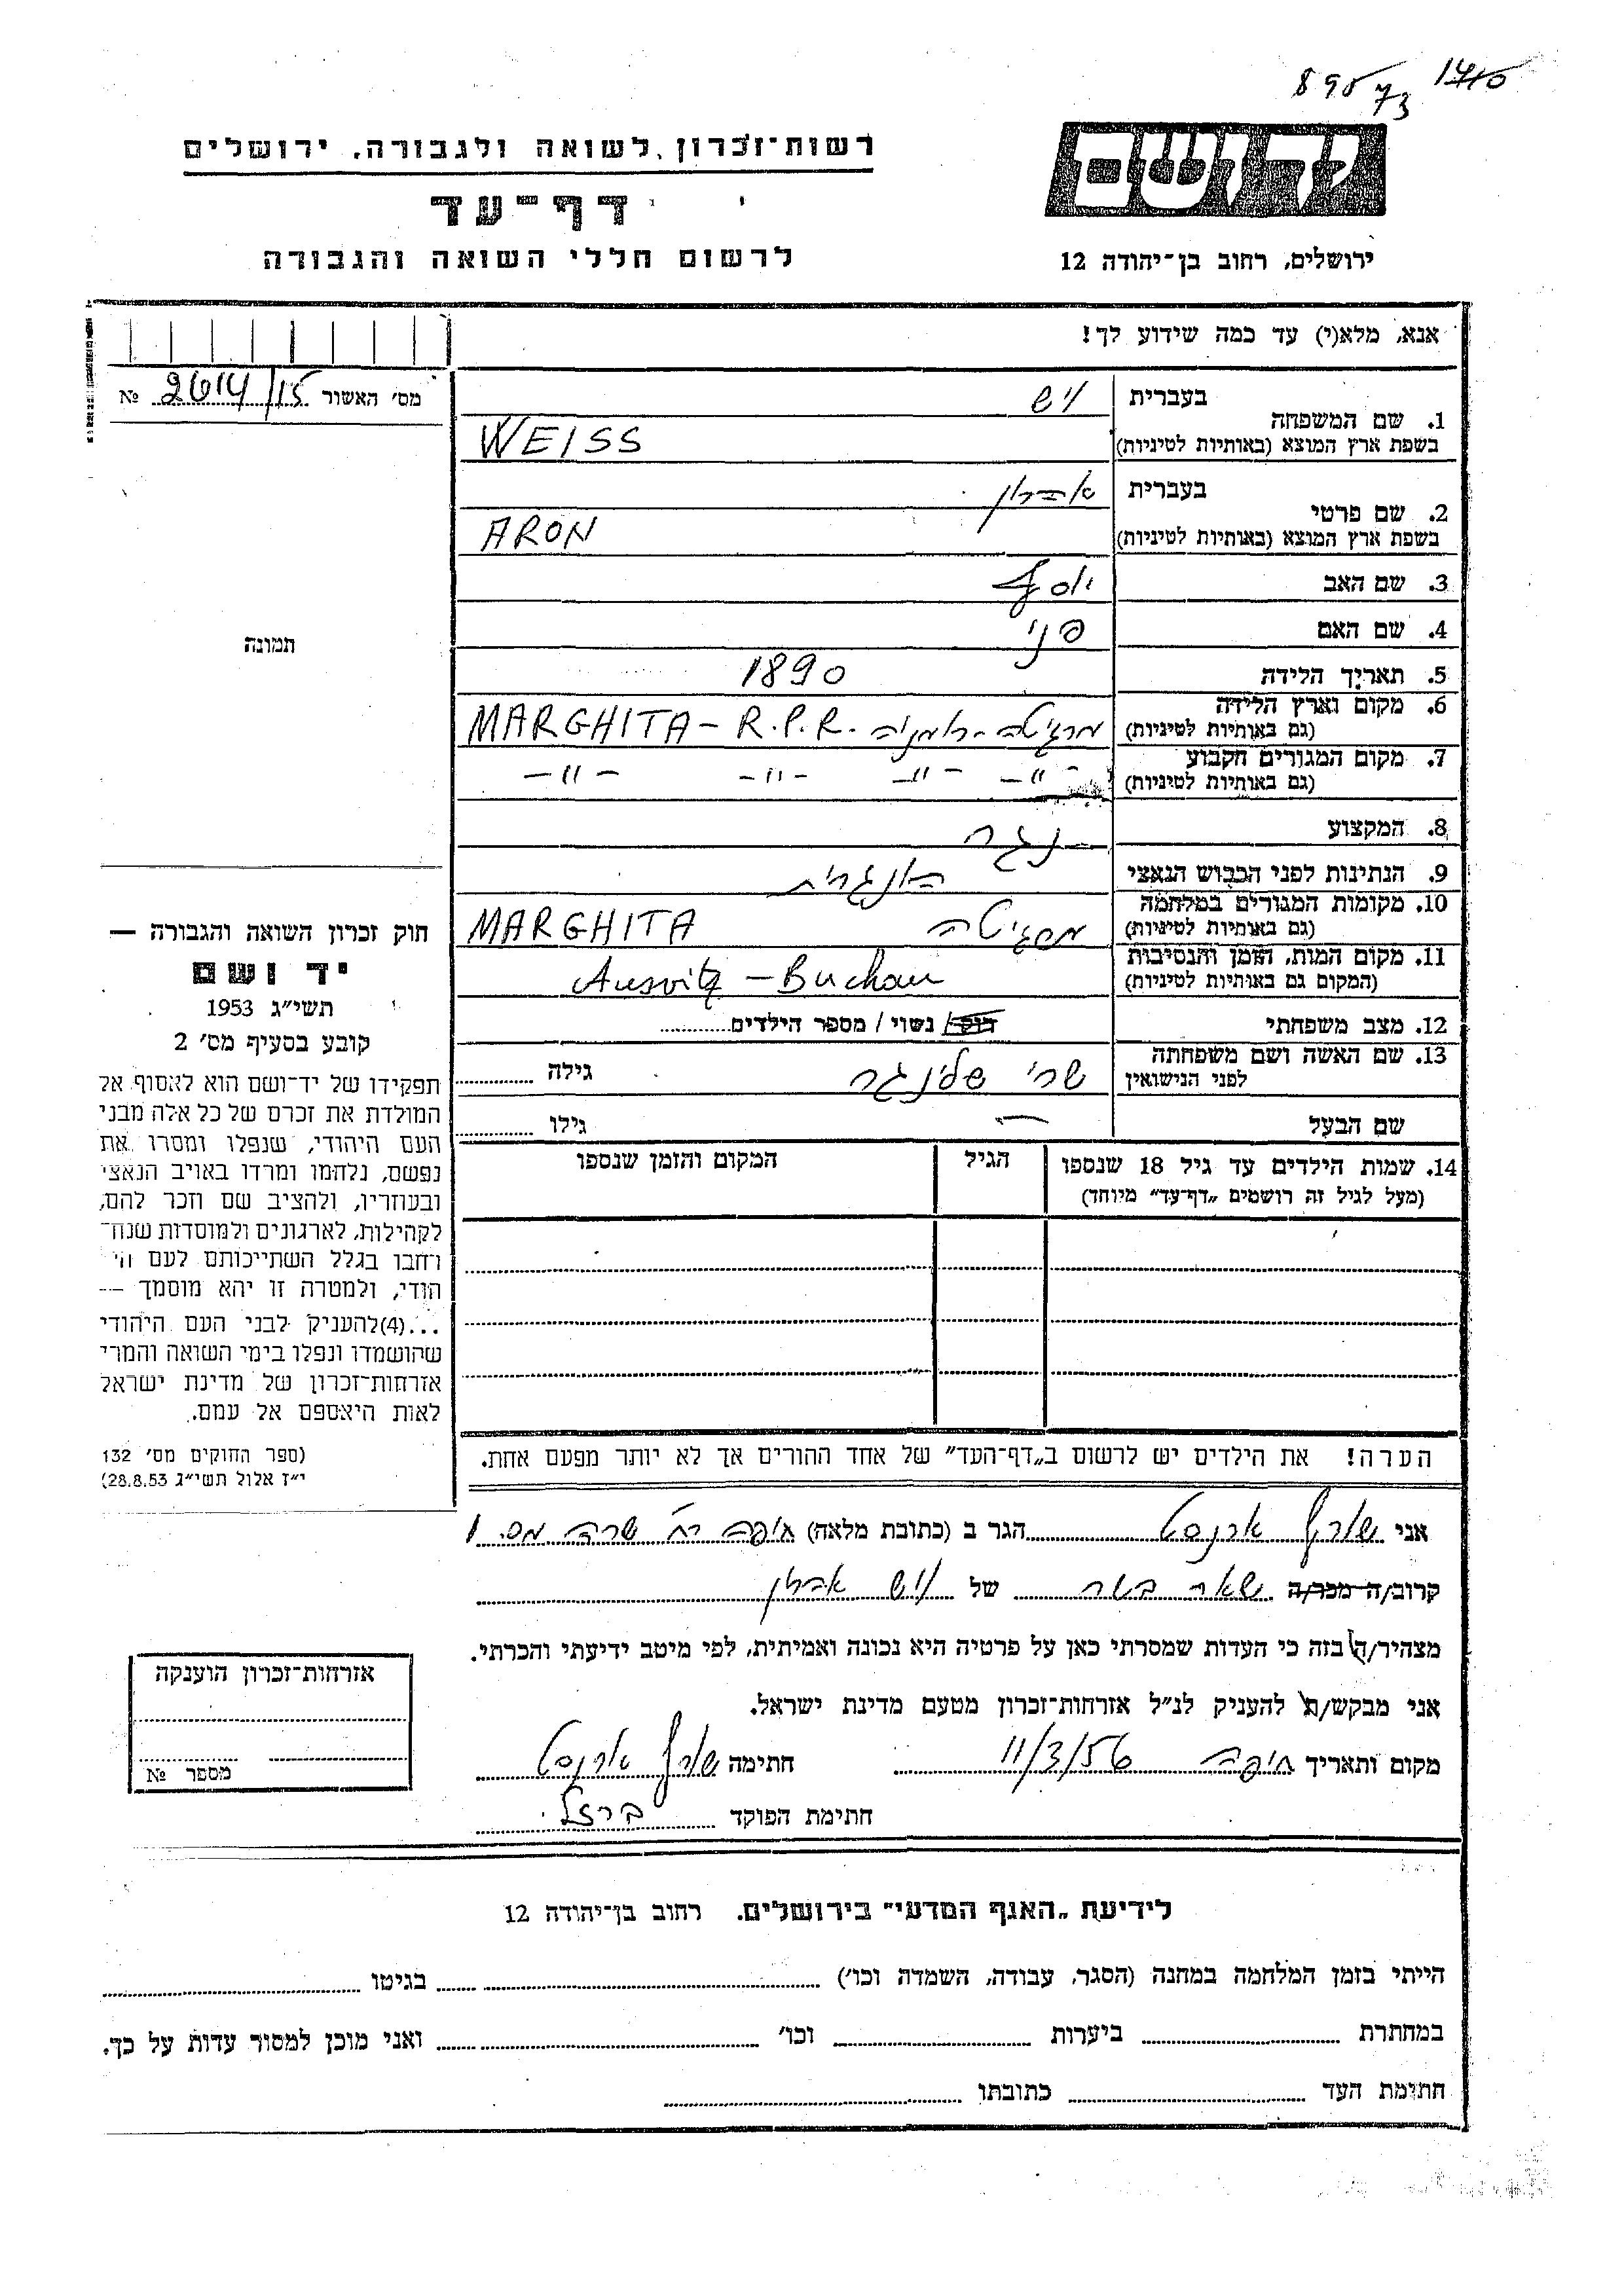 895 73 1410
רשות־זכרון לשואה ולגבורה, ירושלים
יד ושם
דף־עד
לרשום חללי השואה והגבורה
ירושלים, רחוב בן־יהודה 12
אנא, מלא(י) עד כמה שידוע לך!
מס' האשור 2614/15 №
1. שם המשפחה
בעברית וויס
בשפת ארץ המוצא (באותיות לטיניות) WEISS
2. שם פרטי
בעברית אהרון
בשפת ארץ המוצא (באותיות לטיניות) ARON
3. שם האב יוסף
4. שם האם פני
5. תאריך הלידה 1890
6. מקום וארץ הלידה
(גם באותיות לטיניות) מרגיטה - רומניה MARGHITA - R.P.R.
7. מקום המגורים הקבוע
(גם באותיות לטיניות) -"- -"- -"- -"-
8. המקצוע נגר
9. הנתינות לפני הכבוש הנאצי הונגרית
10. מקומות המגורים במלחמה
(גם באותיות לטיניות) מרגיטה MARGHITA
11. מקום המות, הזמן והנסיבות
(המקום גם באותיות לטיניות) Ausvitz - Buchau
12. מצב משפחתי רווק / נשוי / מספר הילדים
13. שם האשה ושם משפחתה
לפני הנישואין שרי שלינגר גילה
שם הבעל — גילו
14. שמות הילדים עד גיל 18 שנספו הגיל המקום והזמן שנספו
(מעל לגיל זה רושמים „דף־עד" מיוחד)
תמונה
חוק זכרון השואה והגבורה —
יד ושם
תשי״ג 1953
קובע בסעיף מס' 2
תפקידו של יד־ושם הוא לאסוף אל
המולדת את זכרם של כל אלה מבני
העם היהודי, שנפלו ומסרו את
נפשם, נלחמו ומרדו באויב הנאצי
ובעוזריו, ולהציב שם וזכר להם,
לקהילות, לארגונים ולמוסדות שנח־
רבו בגלל השתייכותם לעם הי־
הודי, ולמטרה זו יהא מוסמך —
...(4)להעניק לבני העם היהודי
שהושמדו ונפלו בימי השואה והמרי
אזרחות־זכרון של מדינת ישראל
לאות היאספם אל עמם.
(ספר החוקים מס' 132
י״ז אלול תשי״ג 28.8.53)
הערה! את הילדים יש לרשום ב„דף־העד" של אחד ההורים אך לא יותר מפעם אחת.
אני שורץ ארנסט הגר ב (כתובת מלאה) חיפה רח' שרה מס. 1
קרוב/ה מכר/ה שאר בשר של ויש אהרון
מצהיר/ה בזה כי העדות שמסרתי כאן על פרטיה היא נכונה ואמיתית, לפי מיטב ידיעתי והכרתי.
אני מבקש/ת להעניק לנ״ל אזרחות־זכרון מטעם מדינת ישראל.
מקום ותאריך חיפה 11/3/56 חתימה שורץ ארנסט
חתימת הפוקד ברזל
אזרחות־זכרון הוענקה
מספר №
לידיעת „האגף המדעי" בירושלים. רחוב בן־יהודה 12
הייתי בזמן המלחמה במחנה (הסגר, עבודה, השמדה וכו') בגיטו
במחתרת ביערות וכו' ואני מוכן למסור עדות על כך.
חתימת העד כתובתו